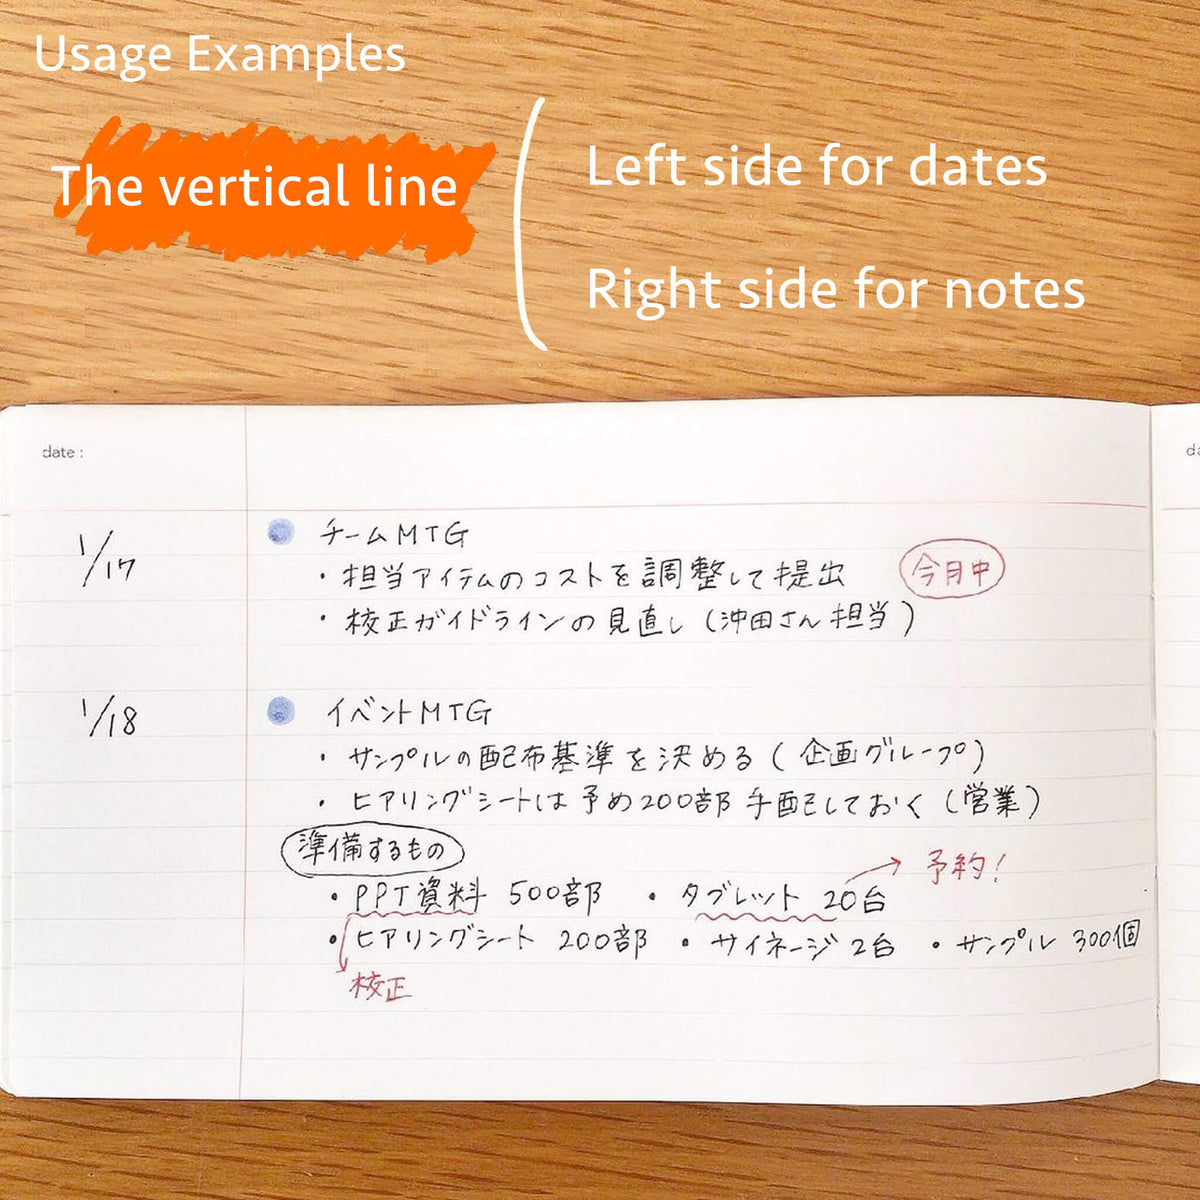 Usage Examples
The vertical line
Left side for dates
Right side for notes
date :
1/17
● チームMTG
・担当アイテムのコストを調整して提出 今月中
・校正ガイドラインの見直し（沖田さん担当）
1/18
● イベントMTG
・サンプルの配布基準を決める（企画グループ）
・ヒアリングシートは予め200部手配しておく（営業）
準備するもの
予約！
・PPT資料 500部 ・タブレット 20台
・ヒアリングシート 200部 ・サイネージ 2台 ・サンプル 300個
校正